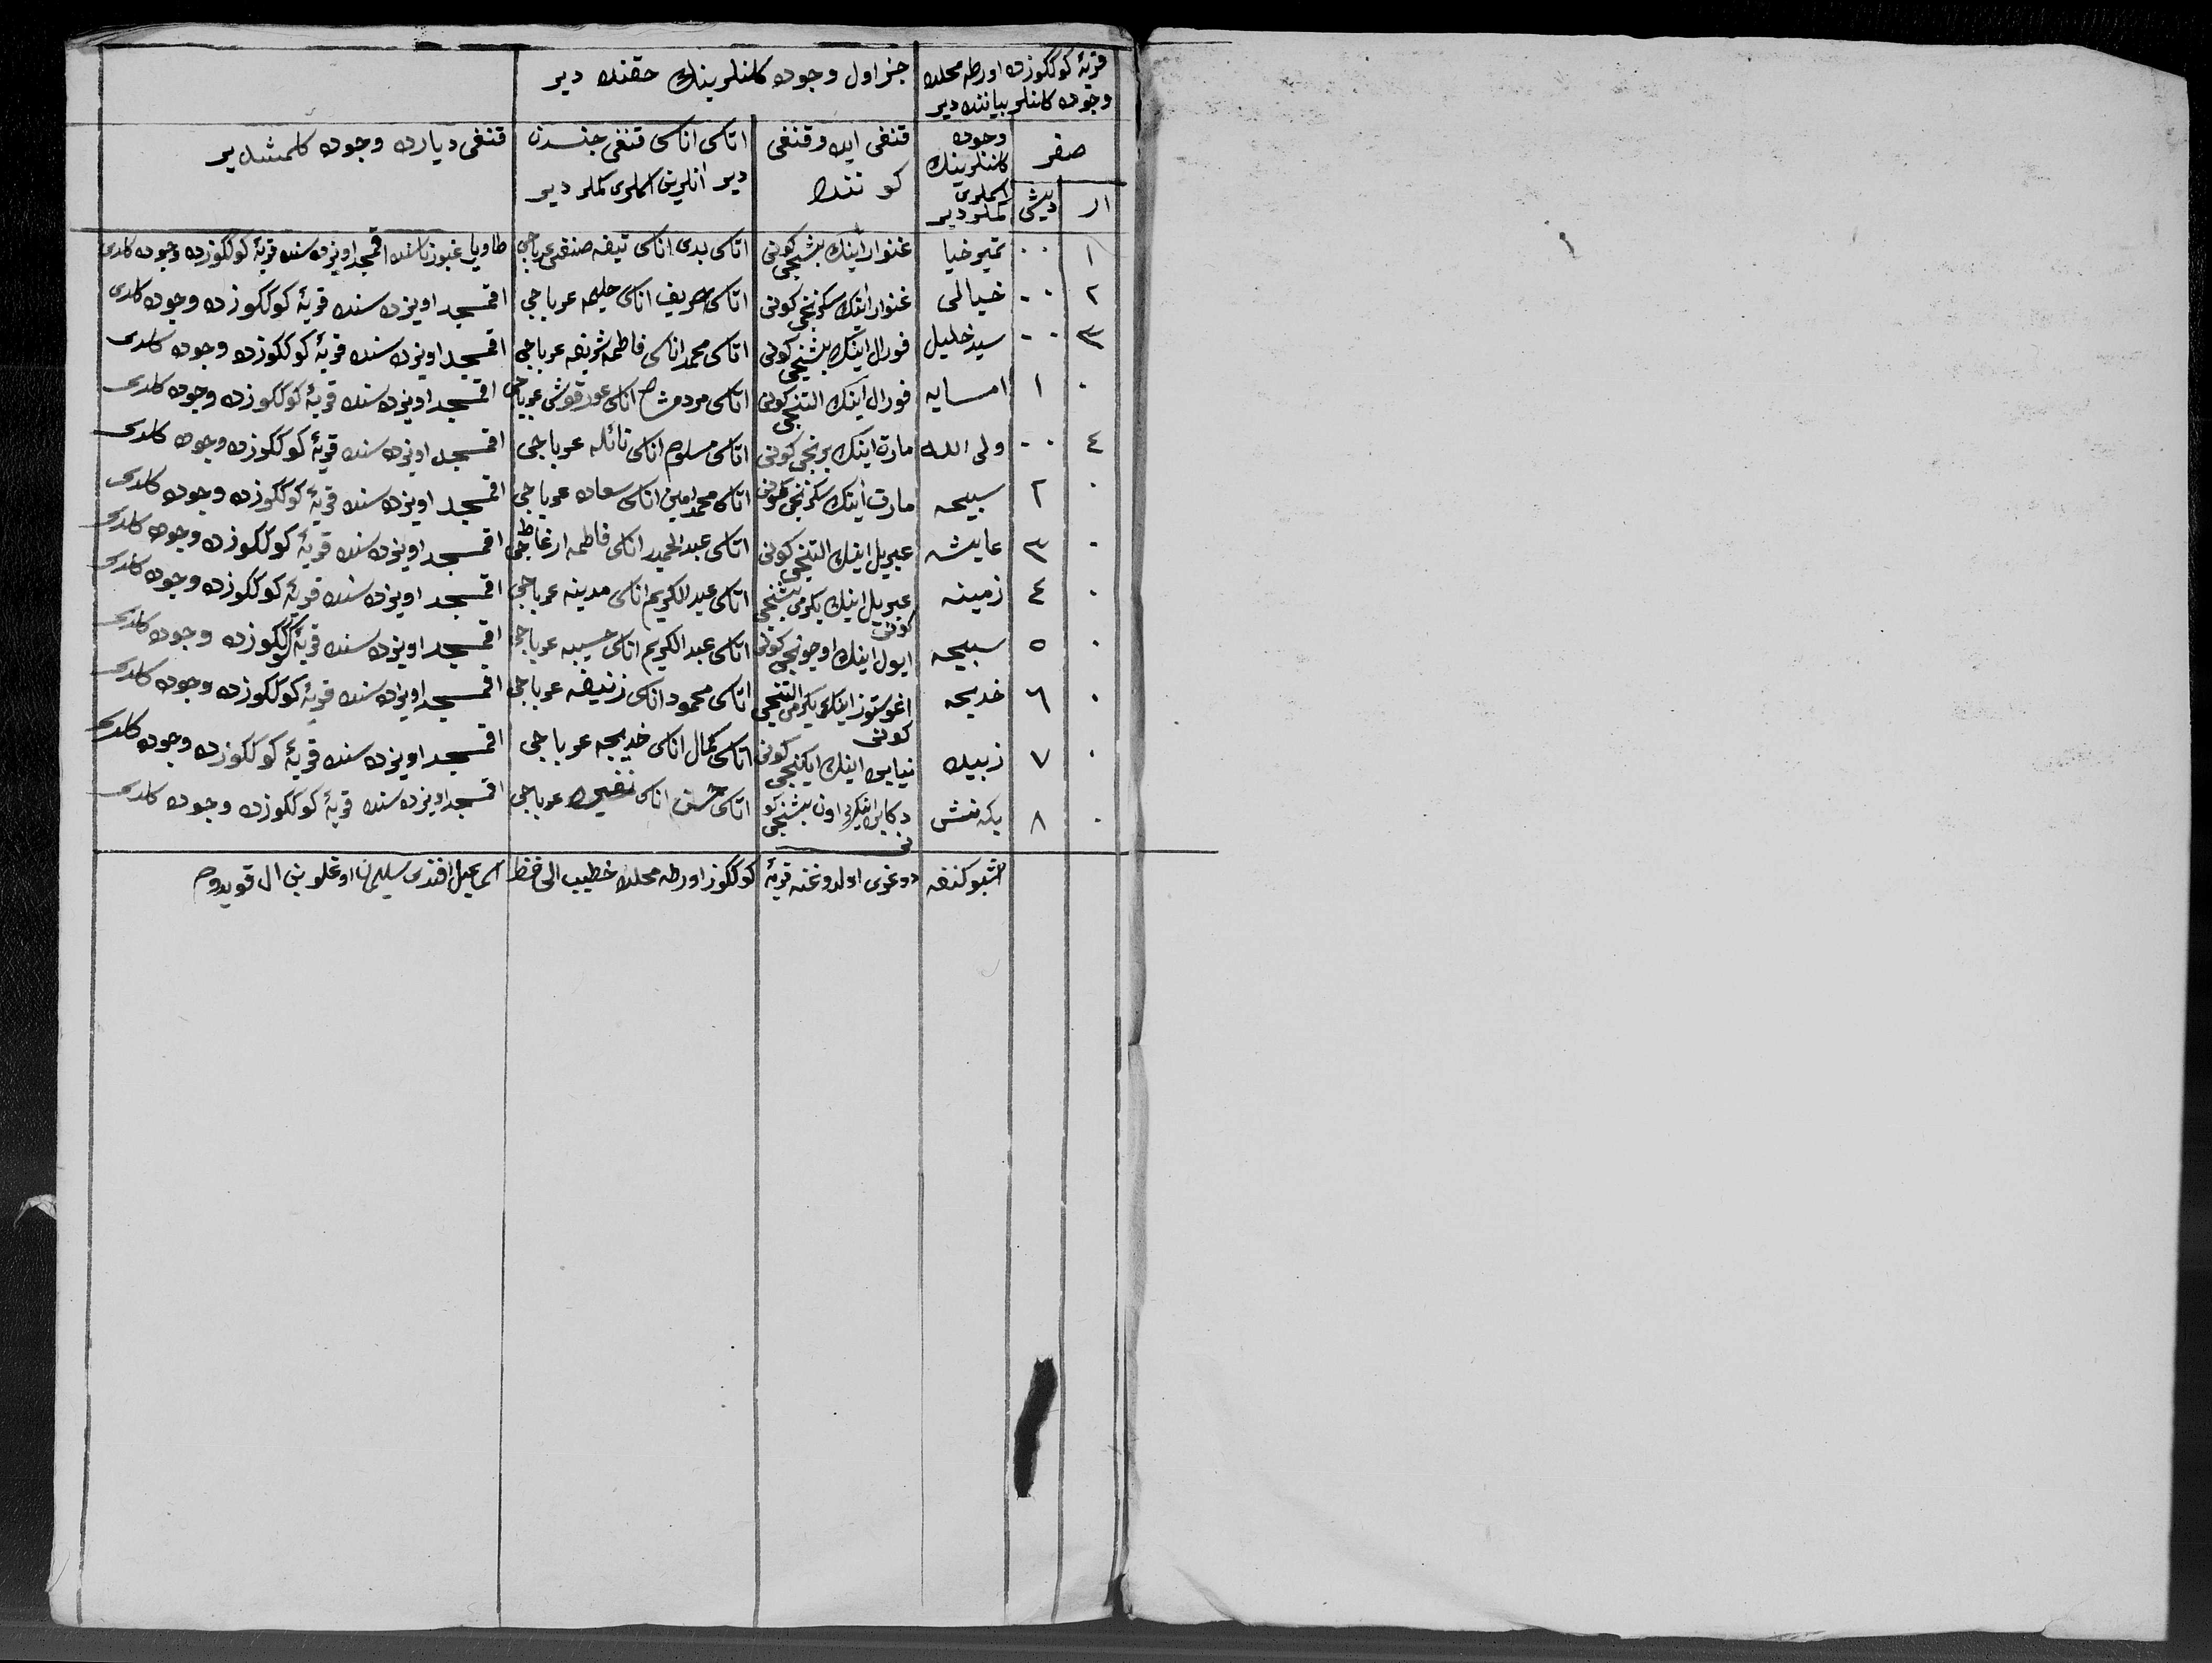 قریهٔ کوککوزده اورطه محلده
وجوده کلنلر بیاننده دیر
جز اول وجوده کلنلرینك حقنده دیر
صفر
ار
دیشی
وجوده
کلنلرینك
اسملری
کملر دیر
قنغی ایده و قنغی
کوننده
اتاسی اناسی قنغی جنسدن
دیر انلرین اسملری کملر دیر
قنغی دیارده وجوده کلمشدیر
١ ٠٠ تمیرخیا غنوار اینك بشنجی کونی اتاسی بدی اناسی تیغه عرباجی اقمسجد اویزده سنده قریهٔ کوککوزده وجوده کلدی
٢ ٠٠ خیالی غنوار اینك سکزنجی کونی اتاسی اناسی حلیمه عرباجی اقمسجد اویزده سنده قریهٔ کوککوزده وجوده کلدی
٣ ٠٠ سید خلیل فورال اینك بشنجی کونی اتاسی محمد اناسی فاطمه شریفه عرباجی اقمسجد اویزده سنده قریهٔ کوککوزده وجوده کلدی
٠ ١ امسایه فورال اینك التنجی کونی اتاسی اناسی عرباجی اقمسجد اویزده سنده قریهٔ کوککوزده وجوده کلدی
٤ ٠٠ ولی الله مارت اینك برنجی کونی اتاسی مسلوم اناسی نائله عرباجی اقمسجد اویزده سنده قریهٔ کوککوزده وجوده کلدی
٠ ٢ سبیحه مارت اینك سکزنجی کونی اتاسی محمد امین اناسی سعاده عرباجی اقمسجد اویزده سنده قریهٔ کوککوزده وجوده کلدی
٠ ٣ عایشه عپریل اینك التنجی کونی اتاسی عبدالحمید اناسی فاطمه اقمسجد اویزده سنده قریهٔ کوککوزده وجوده کلدی
٠ ٤ زمینه عپریل اینك یکرمی بشنجی کونی اتاسی عبدالکریم اناسی مدینه عرباجی اقمسجد اویزده سنده قریهٔ کوککوزده وجوده کلدی
٠ ٥ سبیحه ایول اینك اوچونجی کونی اتاسی عبدالکریم اناسی حسیبه عرباجی اقمسجد اویزده سنده قریهٔ کوککوزده وجوده کلدی
٠ ٦ خدیجه اغوستوز اینك یکرمی التنجی کونی اتاسی محمود اناسی زنیفه عرباجی اقمسجد اویزده سنده قریهٔ کوککوزده وجوده کلدی
٠ ٧ زبیده نیابر اینك ایکنجی کونی اتاسی کمال اناسی خدیجه عرباجی اقمسجد اویزده سنده قریهٔ کوککوزده وجوده کلدی
٠ ٨ بکه نتش دکابر اینك اون بشنجی کونی اتاسی حسن اناسی نفیسه عرباجی اقمسجد اویزده سنده قریهٔ کوککوزده وجوده کلدی
اشبو کنفه دوغری اولدوغنه قریهٔ کوککوز اورطه محلده خطیب الحافظ اسماعیل افندی سلیمان اوغلو بنی ال قویدوم